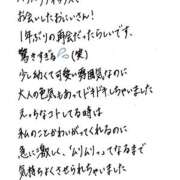 お会いしたおにいさん！
1年ぶりの再会だったらしいです。
驚きすぎる💦(笑)
少し幼くて可愛い雰囲気なのに
大人の色気もあってドキドキしちゃいました
えっちなコトしてる時は
私のことかわいがってくれるのに
急に激しく、"ムリムリ"ってなるまで
気持ちよくさせられちゃいました